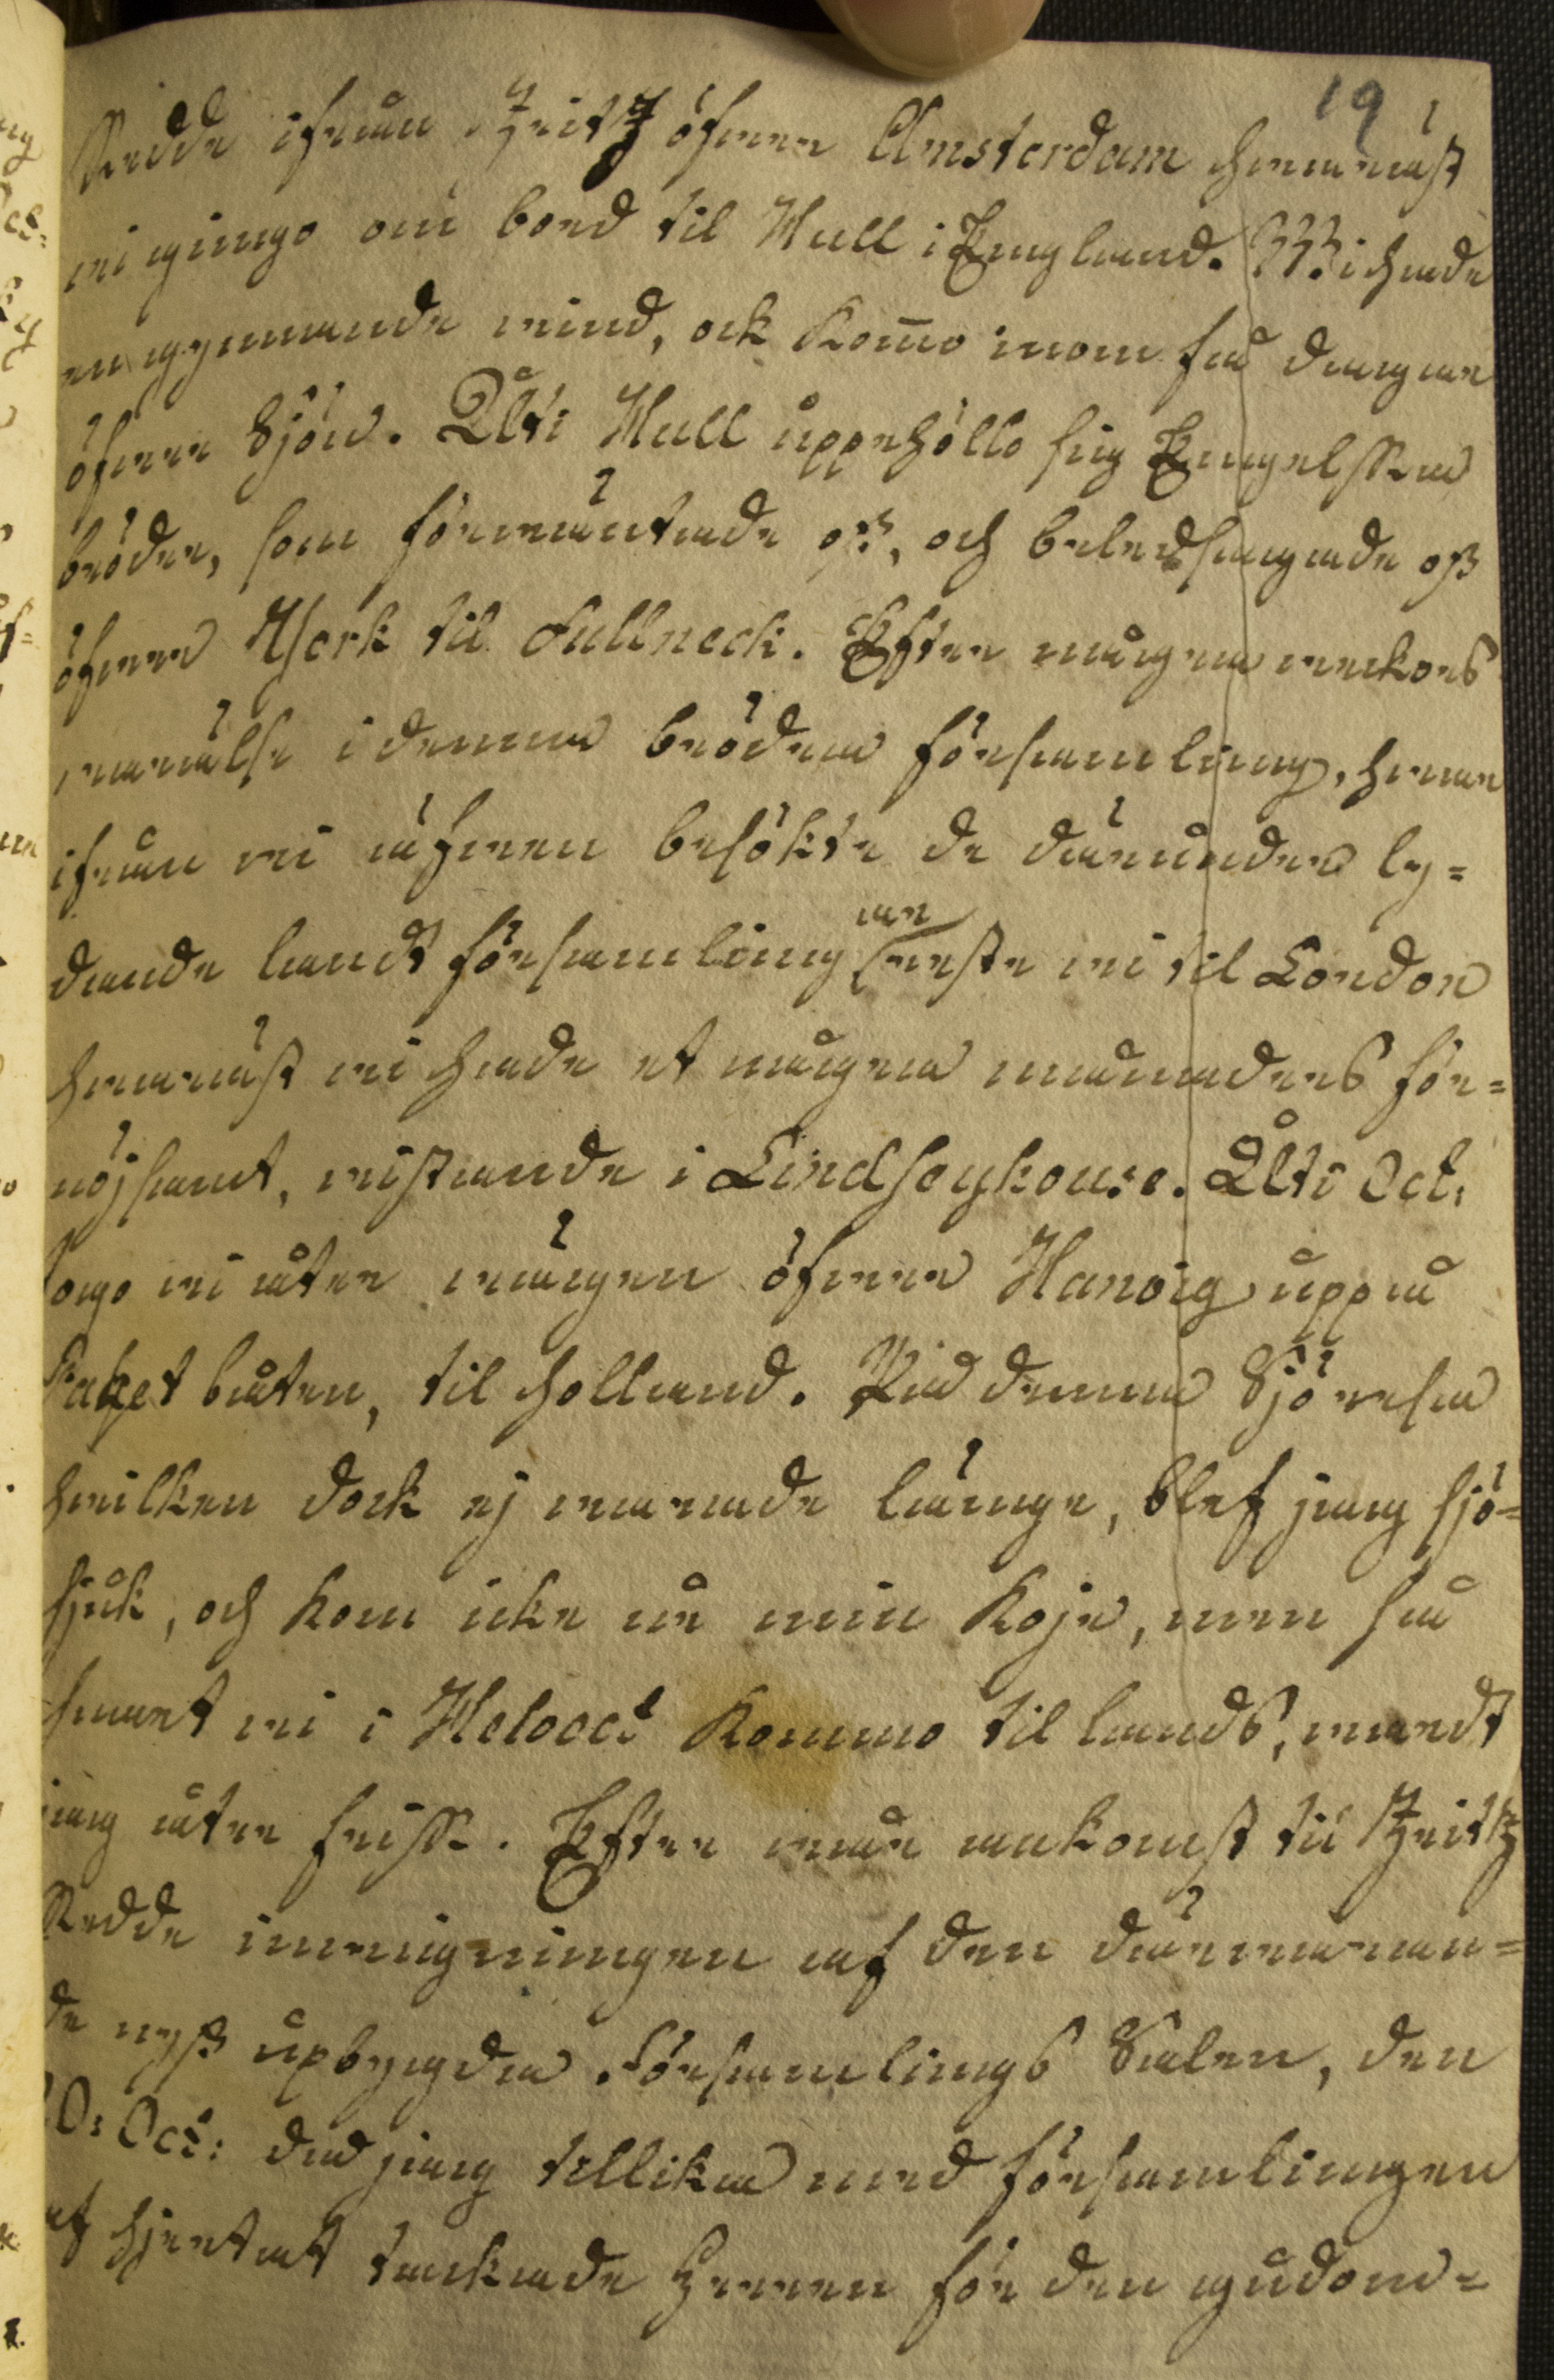 19
Skedde ifrån Zeitz öfwer Amsterdam hwaräst
wi gingo om bord til Hull i England. Wi hade
en gynnande wind, och kom̄o inom få dagar
öfwer Sjön. Uti Hull uppehöllo sig Engelska
bröder, som förwäntade oß, och beledsagade oß
öfwer York til Fullneck. Efter några weckors
warelse i denna brödra församling, hwar
ifrån wi äfwen besökte de därunder ly=
dande landt församlingar reste wi til London
hwaräst wi hade et några månaders för=
nöjsamt, wistande i Lindseyhouse. Uti Oct:
togo wi åter wägen öfwer Harwig uppå
Paket båten, til Holland. På denna Sjö resa
hwilken dock ej warade länge, blef jag sjö=
sjuk, och kom icke ur min Koje, men så
snart wi i Helvoet kommo til lands, wardt
jag åter frisk. Efter wår ankomst til Zeitz
Skedde inwigningen af den därwaran=
de nyß upbygda Församlings Salen, den
Oct: då jag tillika med församlingen
af hjertat tackade Herren för den gudom=